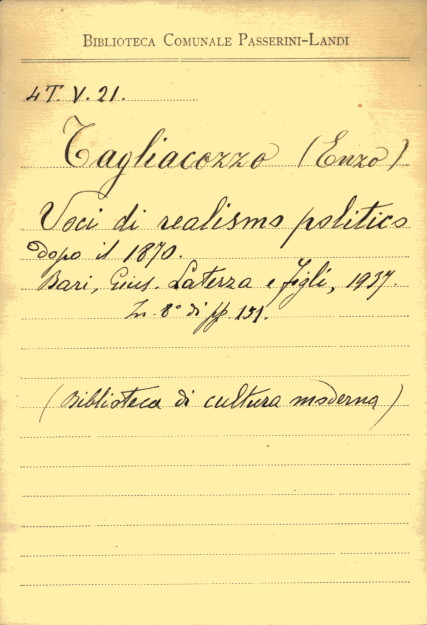 BIBLIOTECA COMUNALE PASSERINI-LANDI
4T. V. 21.
Tagliacozzo (Enzo)
Voci di realismo politico
dopo il 1870.
Bari, Gius. Laterza e figli, 1937.
In 8° di pp. 151.
(Biblioteca di cultura moderna)